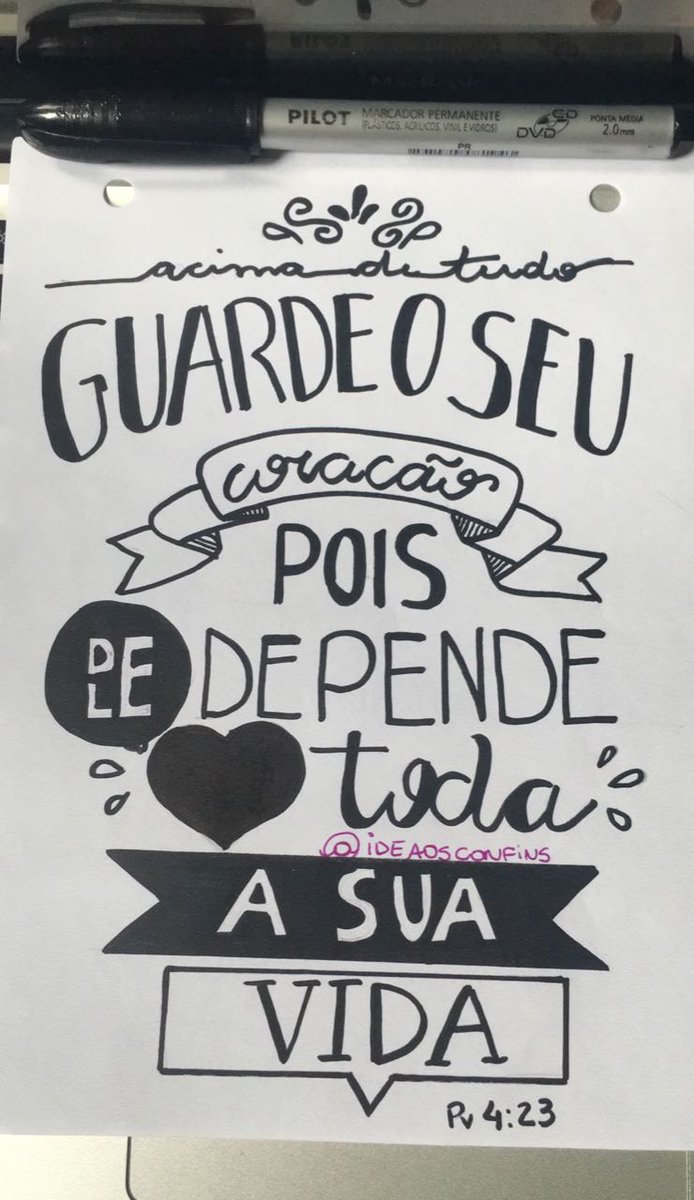 PILOT MARCADOR PERMANENTE
(PLÁSTICOS, ACRÍLICOS, VINIL E VIDROS)
CD
DVD
PONTA MÉDIA
2.0mm
PR
acima de tudo
GUARDE O SEU
coracão
POIS
DE
LE
DEPENDE
toda
@IDEAOSCONFINS
A SUA
VIDA
Pv 4:23